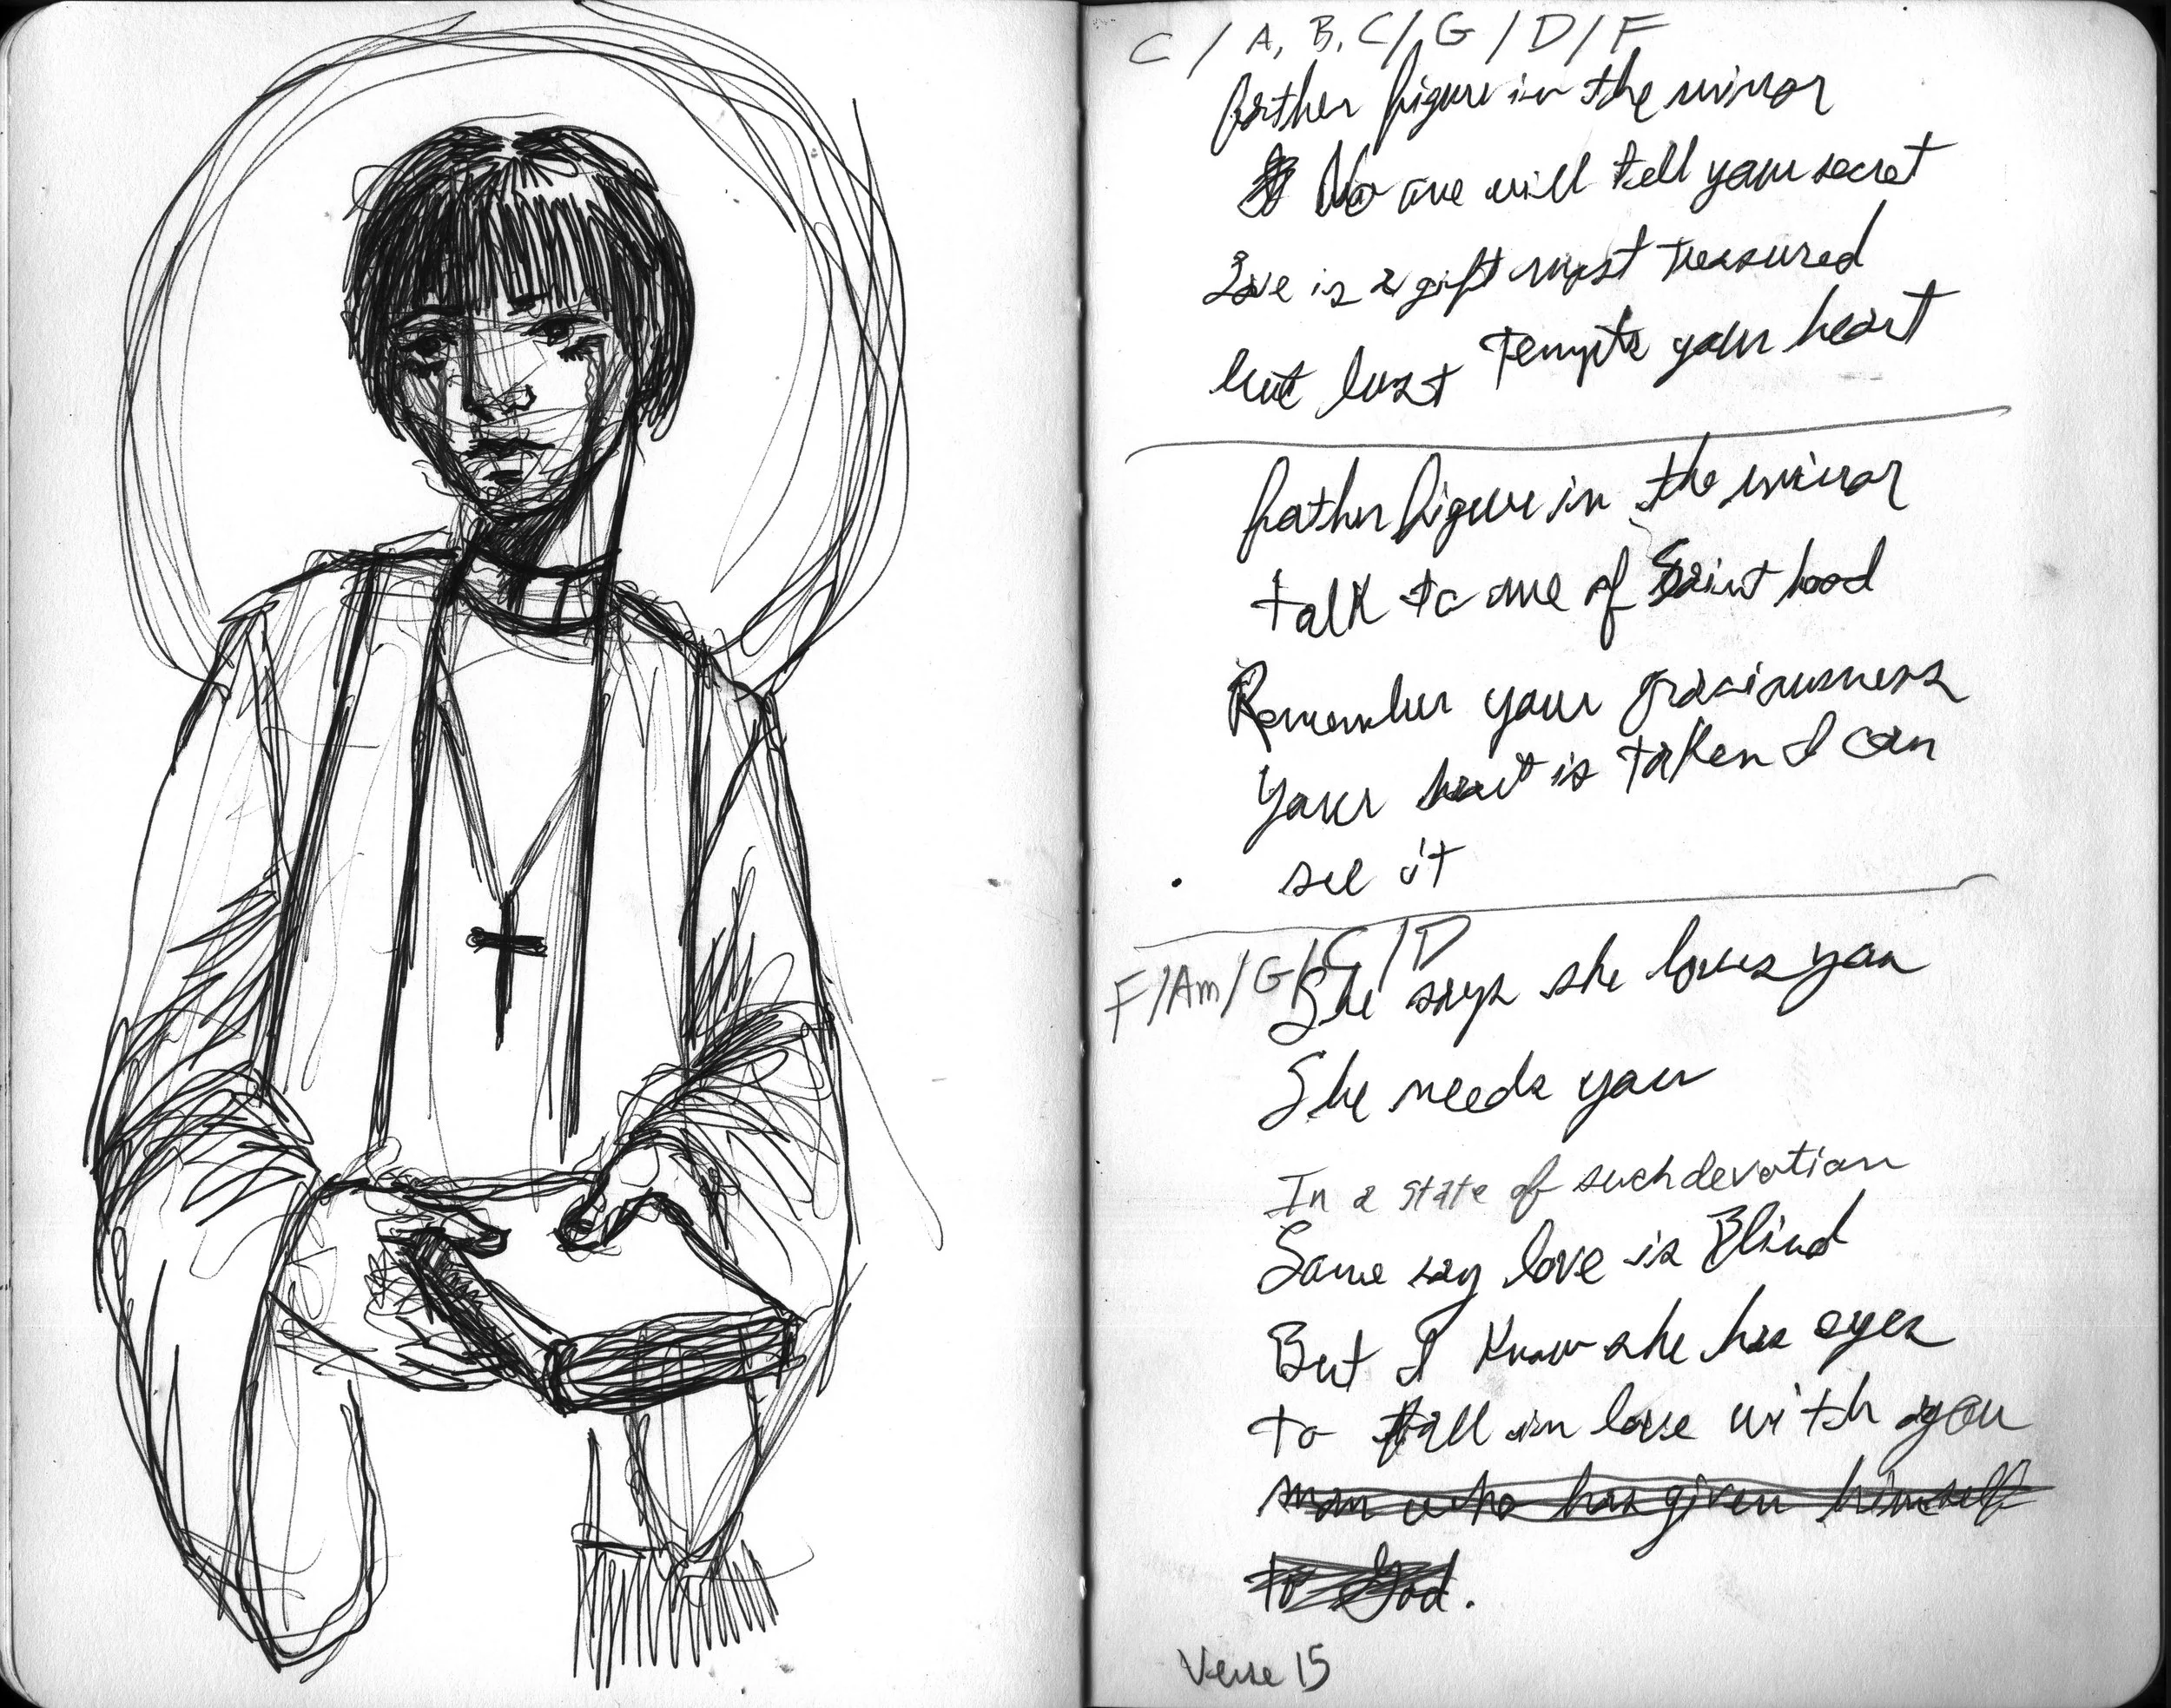 C / A, B, C / G / D / F
father figure in the mirror
No one will tell your secret
Love is a gift most treasured
but lust tempts your heart
father figure in the mirror
talk to me of Saint hood
Remember your graciousness
Your heart is taken I can
see it
F / Am / G / C / D
She says she loves you
She needs you
In a state of such devotion
Some say love is Blind
But I know she has eyes
to fall in love with you
man who has given himself
to God.
Verse 15